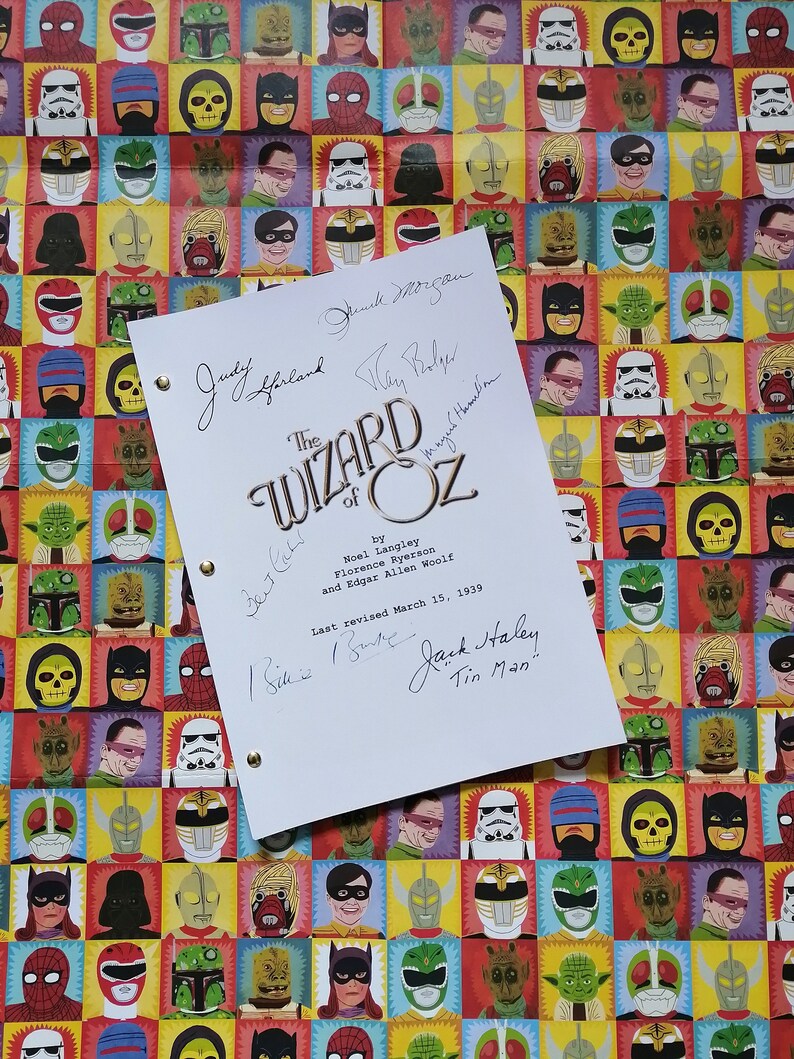 Frank Morgan
Judy Garland
Ray Bolger
Margaret Hamilton
The
WIZARD
of OZ
by
Noel Langley
Florence Ryerson
and Edgar Allen Woolf
Bert Lahr
Last revised March 15, 1939
Billie Burke
Jack Haley
"Tin Man"